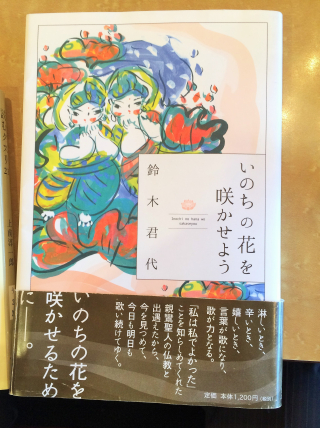 いのちの花を
咲かせよう
鈴木君代
inochi no hana wo
sakaseyou
淋しいとき、
辛いとき、
嬉しいとき、
言葉が歌になり、
歌が力となる。
「私は私でよかった」
ことを知らしめてくれた
親鸞聖人の仏教と
出遇えたから、
今を見つめて、
今日も明日も
歌い続けてゆく。
いのちの花を
咲かせるため
に―。
定価 本体1,200円(税別)